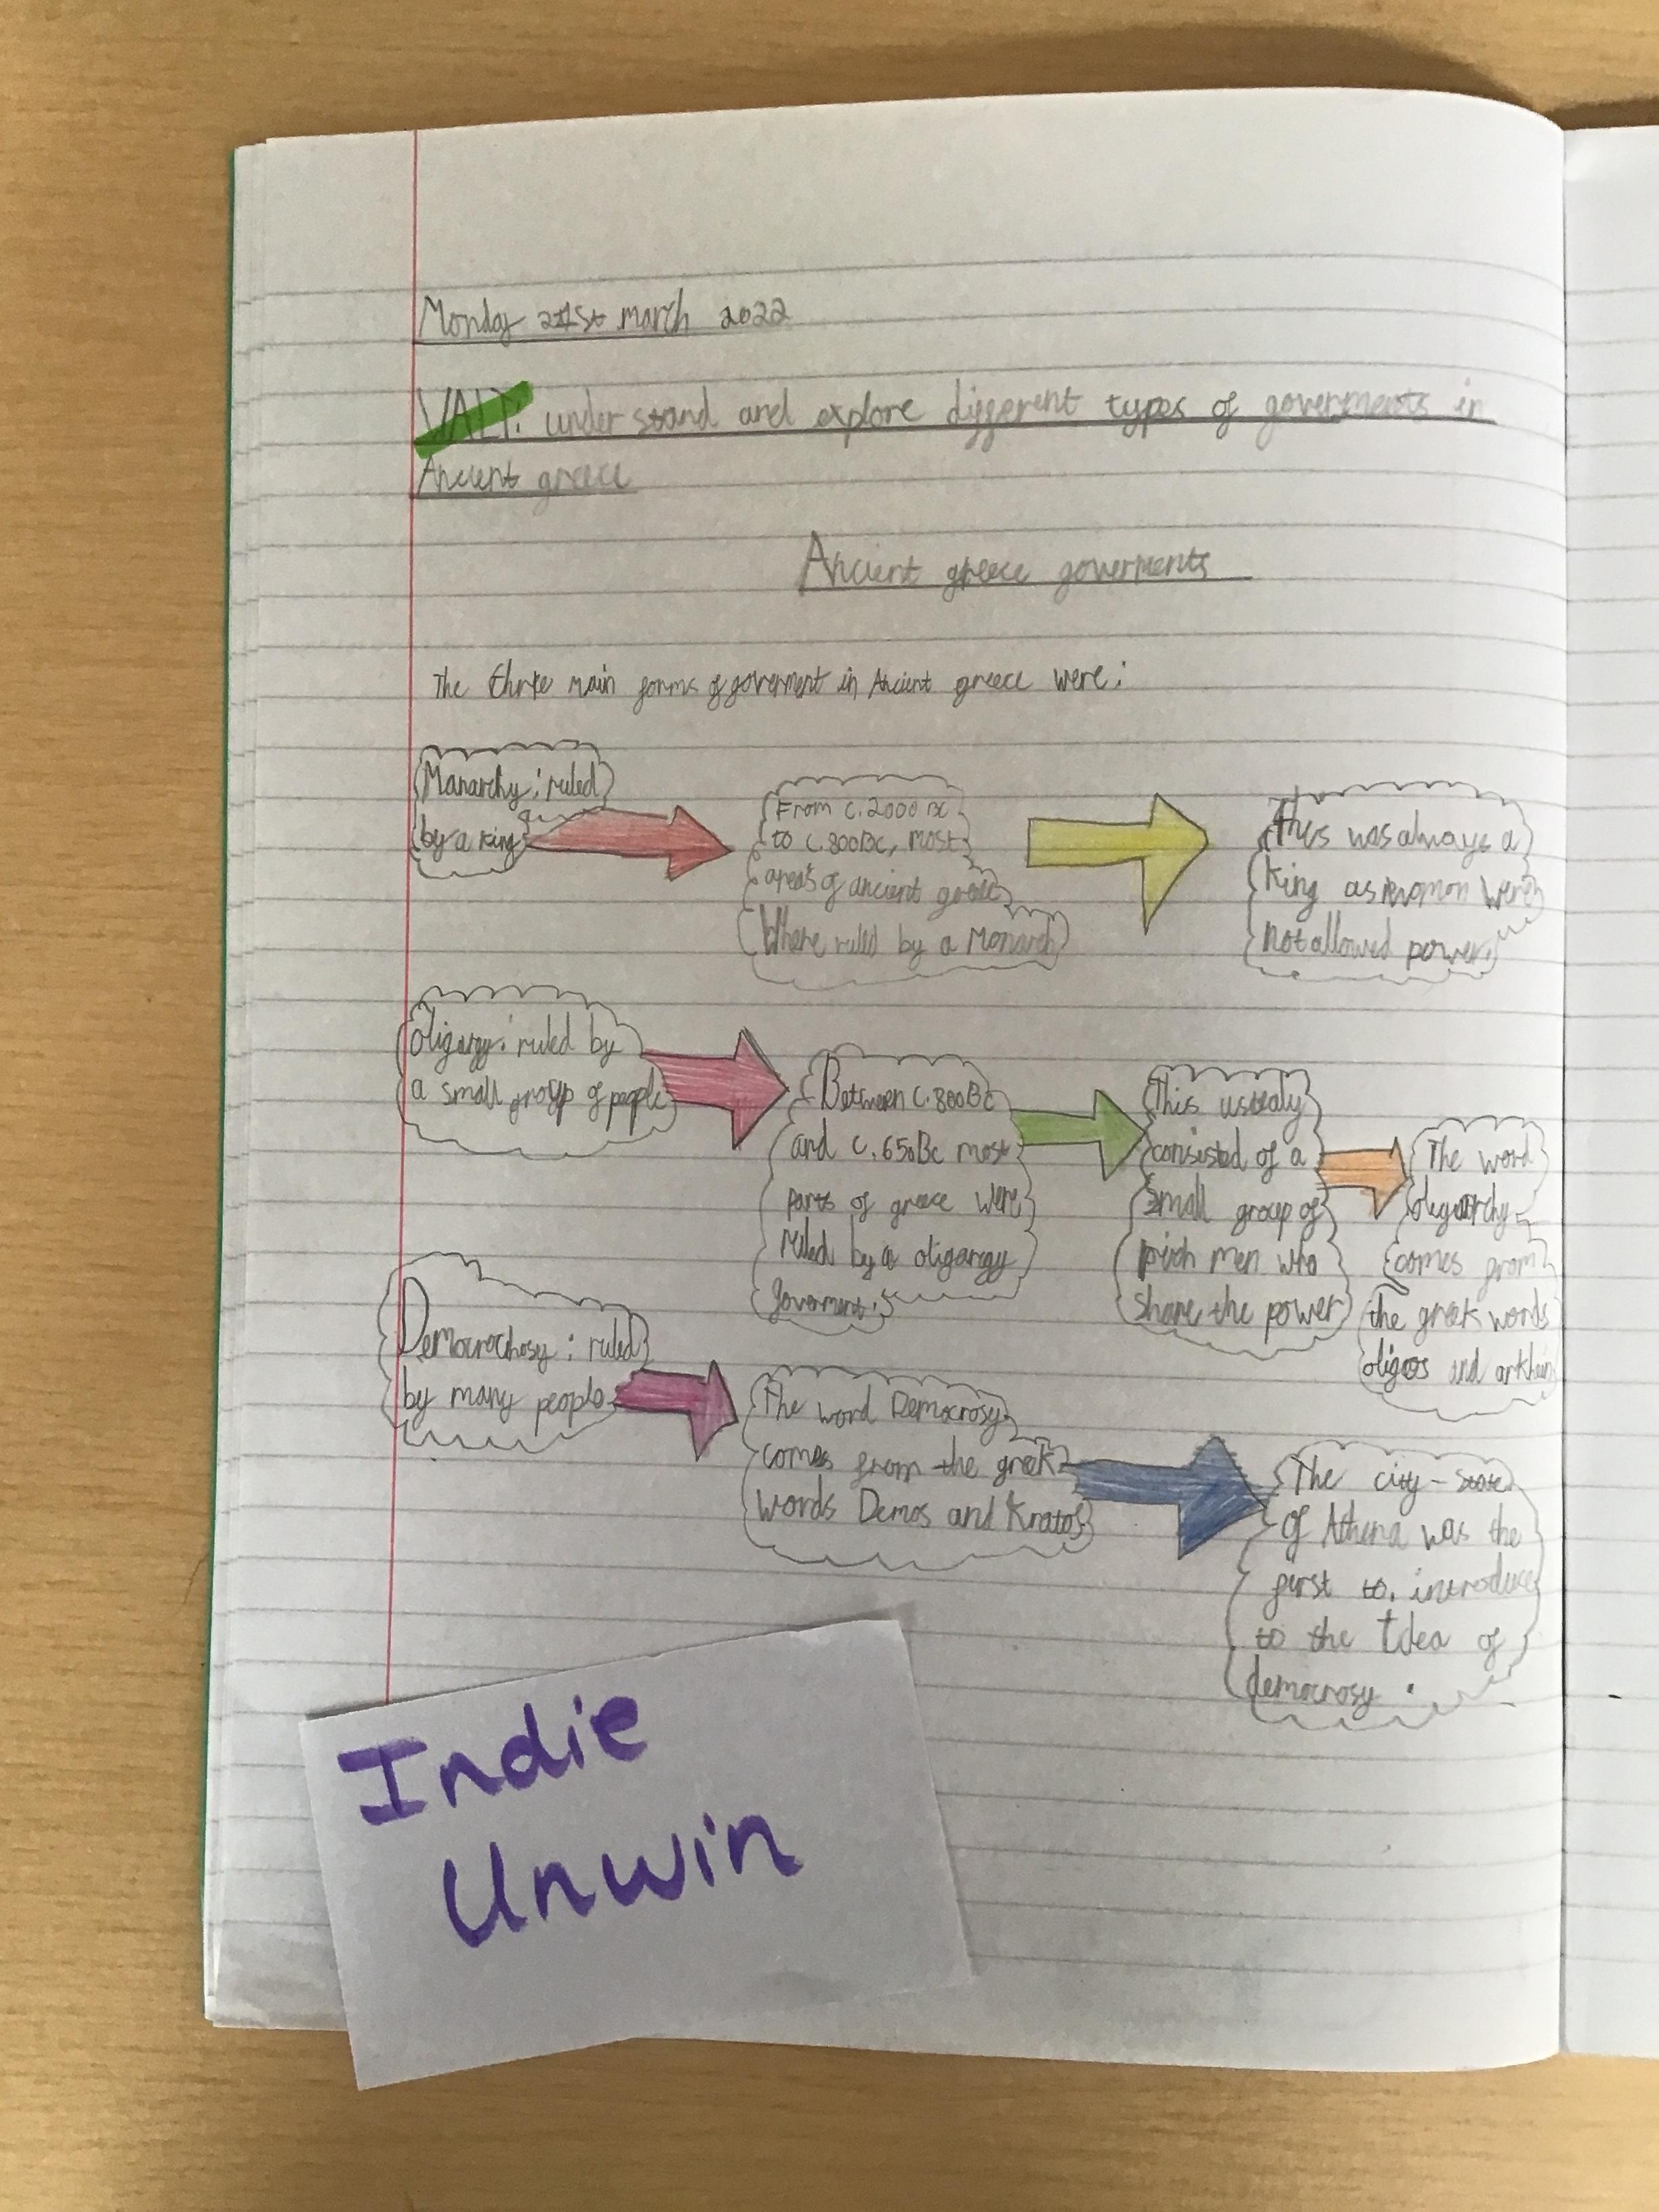 Monday 21st march 2022
WALT: understand and explore different types of goverments in
Ancient greece
Ancient greece goverments
The three main forms of goverment in Ancient greece were:
Manarchy: ruled
by a king
From c.2000 BC
to c.800BC, most
areas of ancient greece
Where ruled by a Monarch
This was always a
King as women were
not allowed power.
oligargy: ruled by
a small group of people
Between c.800BC
and c.650BC most
parts of greece were
ruled by a oligargy
Goverment.
This usealy
consisted of a
small group of
rich men who
share the power
The word
oligarchy
comes from
the greek words
oligos and arkhein
Democrachosy: ruled
by many people
The word Democrosy
comes from the greek
words Demos and Kratos
The city-state
of Athena was the
first to. introduce
to the Idea of
democrosy.
Indie
Unwin